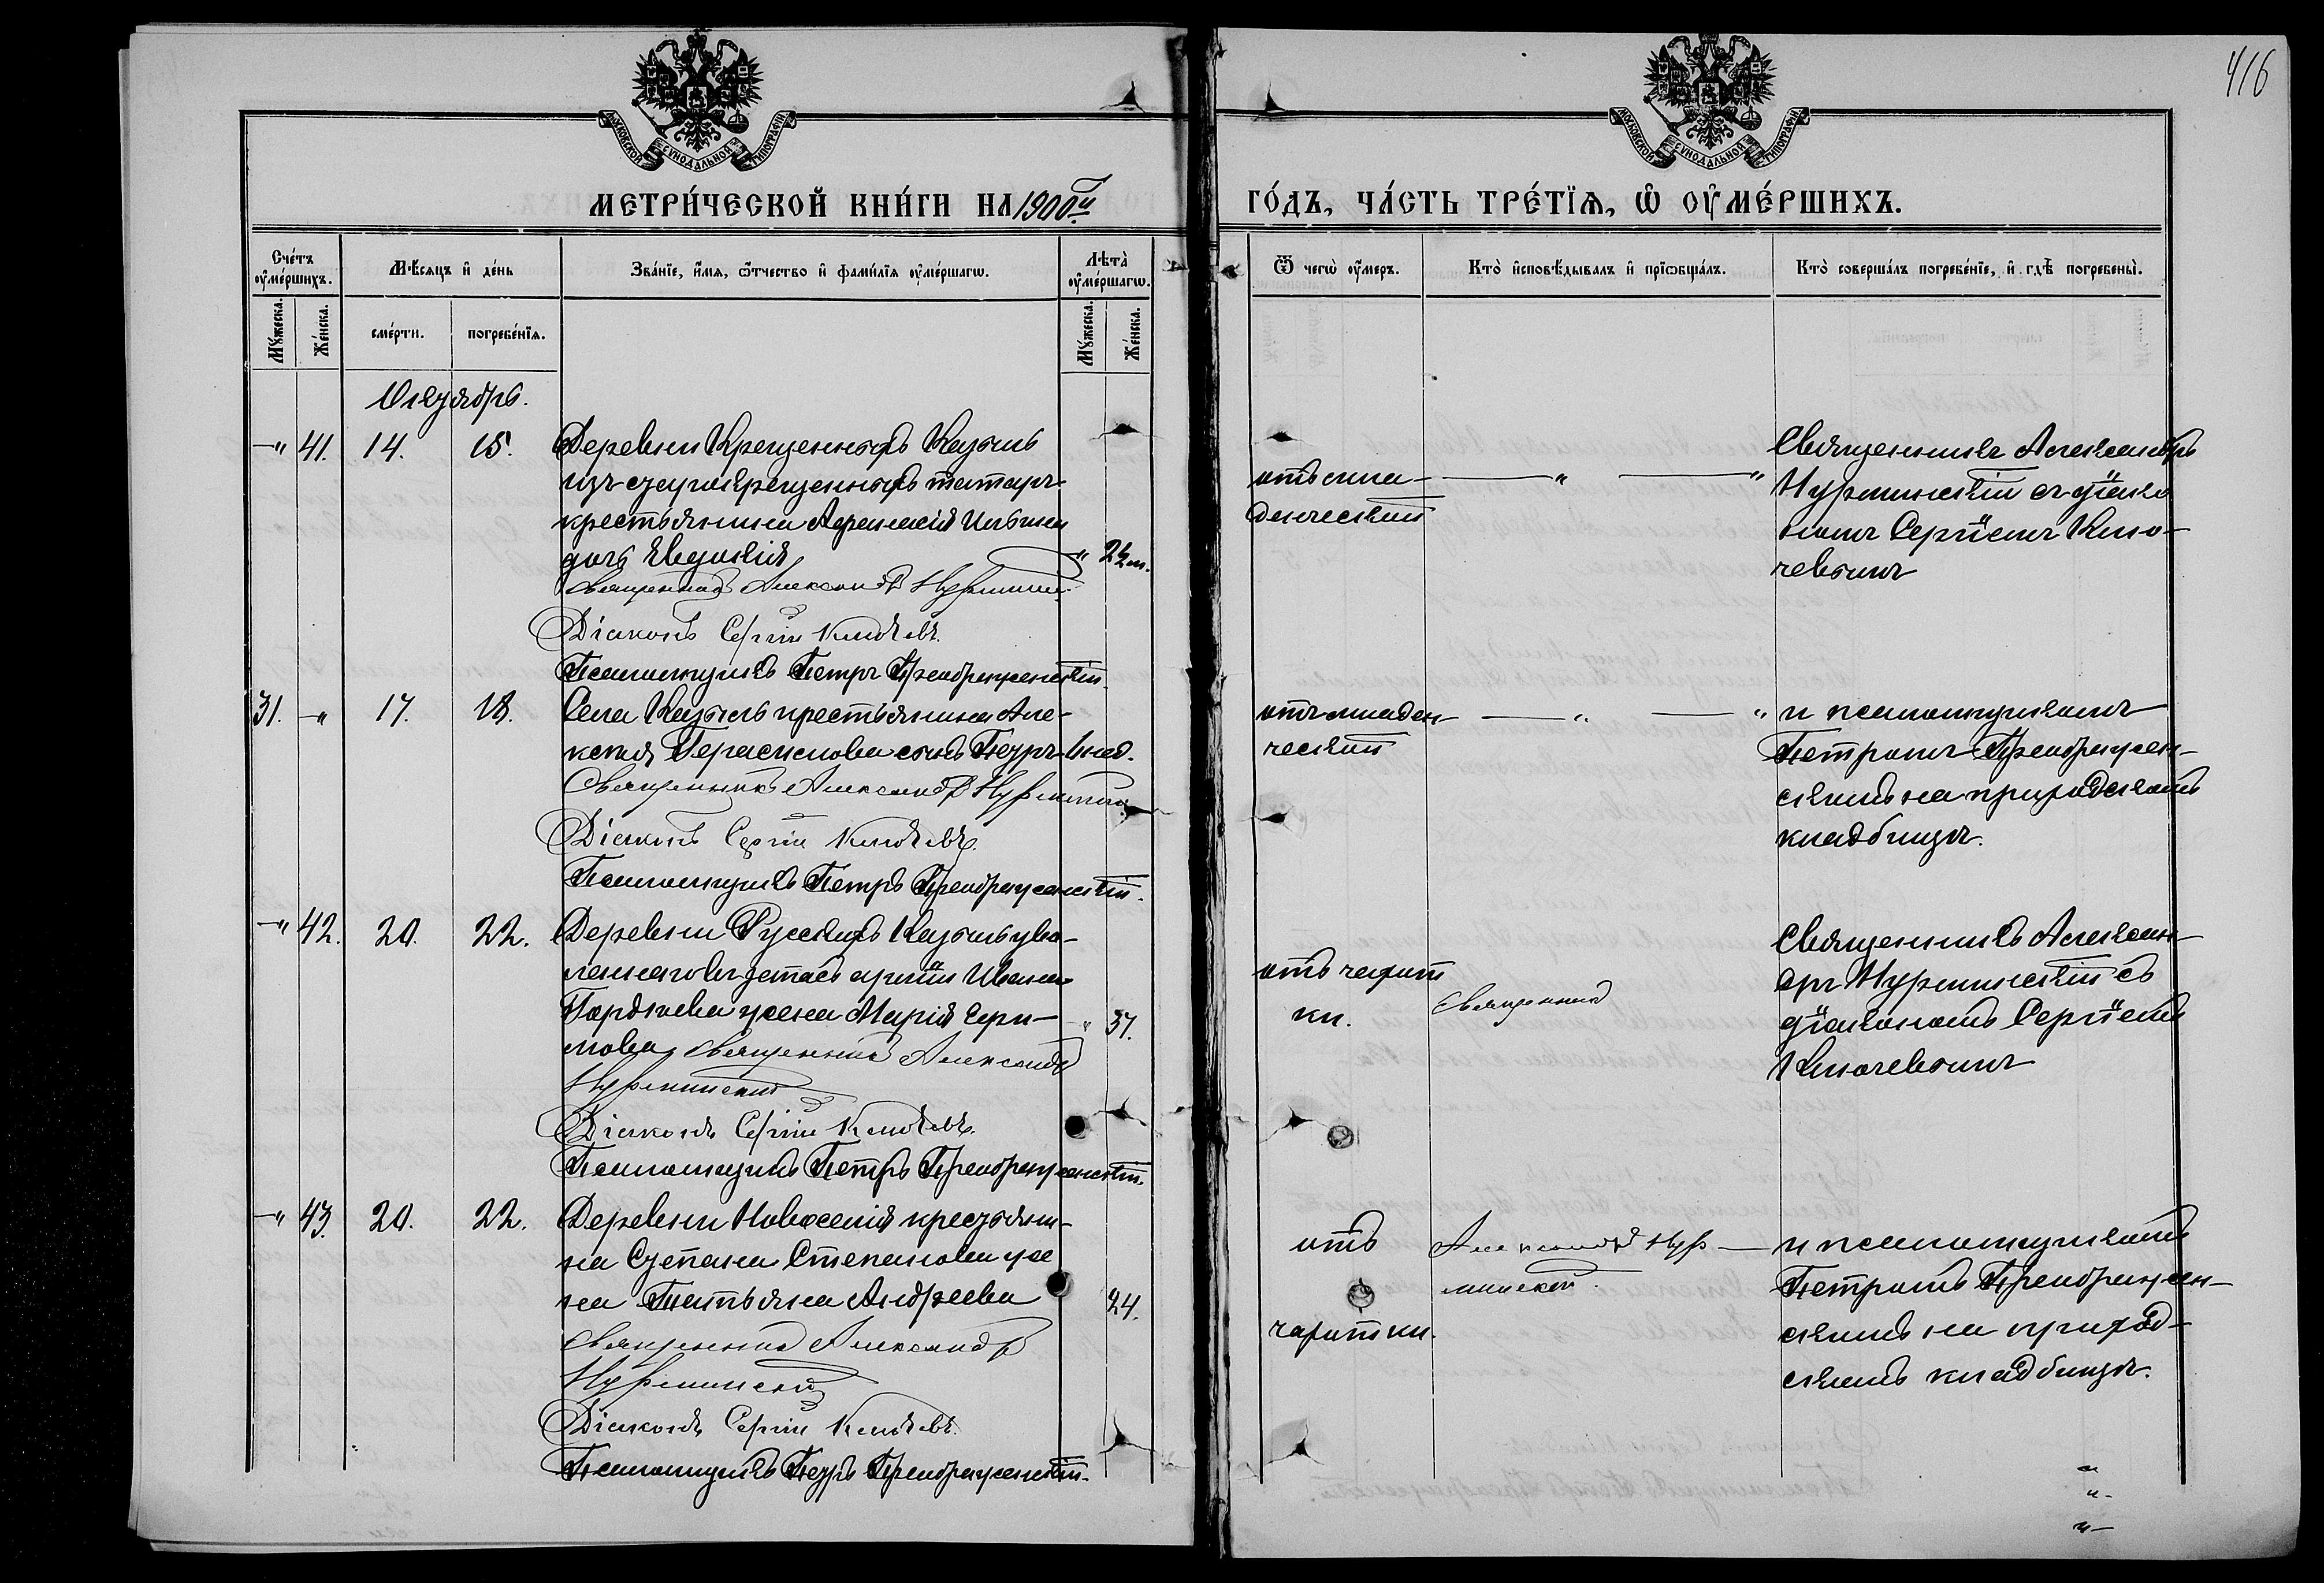 416
МОСКОВСКОЙ СУНОДАЛЬНОЙ ТИПОГРАФІИ
МОСКОВСКОЙ СУНОДАЛЬНОЙ ТИПОГРАФІИ
МЕТРИ́ЧЕСКОЙ КНИ́ГИ НА 1900й
ГО́ДЪ, ЧА́СТЬ ТРЕ́ТЇѦ, Ѡ҆ ОУ҆МЕ́РШИХЪ.
Сче́тъ оу҆ме́ршихъ.
Мѣ́сяцъ и҆ де́нь
Зва́нїе, и҆́мѧ, ѻ҆́тчество и҆ фами́лїѧ оу҆ме́ршагѡ.
Лѣ́та оу҆ме́ршагѡ.
Ѿ чегѡ̀ оу҆́меръ.
Кто̀ и҆сповѣ́дывалъ и҆ прїѡбща́лъ.
Кто̀ соверша́лъ погребе́нїе, и҆ гдѣ̀ погребены̀.
Мꙋ́жеска.
Же́нска.
сме́рти.
погребе́нїѧ.
Мꙋ́жеска.
Же́нска.
Октябрь.
—„ 41. 14. 15. Деревни Крещенныхъ Казыль
изъ старокрещенныхъ татаръ
крестьянина Афанасія Ильина
дочь Евдокія „ 2 1/2 м.
Священникъ Александръ Нурминскій
Діаконъ Сергій Ключевъ.
Псаломщикъ Петръ Преображенскій.
отъ мла-
денческой
— „ — „
Священникъ Александръ
Нурминскій съ діако
номъ Сергіемъ Клю-
чевымъ
31. —„ 17. 18. Села Казыль крестьянина Але-
ксѣя Герасимова сынъ Петръ 1 нед.
Священникъ Александръ Нурминскій
Діаконъ Сергій Ключевъ.
Псаломщикъ Петръ Преображенскій.
отъ младен-
ческой
— „ — „
и псаломщикомъ
Петромъ Преображен-
скимъ на приходскомъ
кладбищѣ.
—„ 42. 20. 22. Деревни Русскихъ Казыль уво-
леннаго въ запасъ арміи Ивана
Гордѣева жена Марія Ерми-
лова „ 37.
Священникъ Александръ
Нурминскій
Діаконъ Сергій Ключевъ.
Псаломщикъ Петръ Преображенскій.
отъ чахот
ки.
Священникъ
Священникъ Алексан-
дръ Нурминскій съ
діакономъ Сергіемъ
Ключевымъ
—„ 43. 20. 22. Деревни Новоселія крестьяни-
на Степана Степанова же
на Татьяна Андреева 24.
Священникъ Александръ
Нурминскій
Діаконъ Сергій Ключевъ.
Псаломщикъ Петръ Преображенскій.
отъ
чахотки.
Александръ Нур-
минскій.
и псаломщикомъ
Петромъ Преображен-
скимъ на приход-
скомъ кладбищѣ.